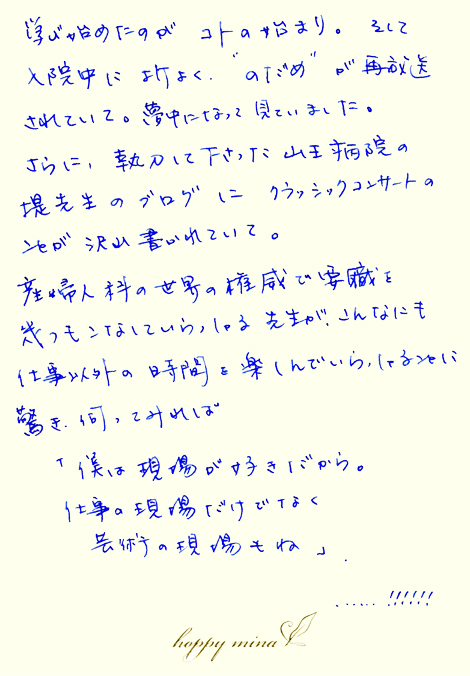 学び始めたのが コトの始まり。 そして
入院中に 折よく、"のだめ" が 再放送
されていて。夢中になって 見ていました。
さらに、執刀して下さった 山王病院の
堤先生の ブログに クラッシックコンサートの
ことが 沢山 書かれていて。
産婦人科の世界の権威で 要職を
幾つもこなしていらっしゃる 先生が、こんなにも
仕事以外の 時間を 楽しんでいらっしゃることに
驚き、伺ってみれば
「僕は 現場が 好きだから。
仕事の 現場だけでなく
芸術の現場もね」.
......!!!!!!
hoppy mina